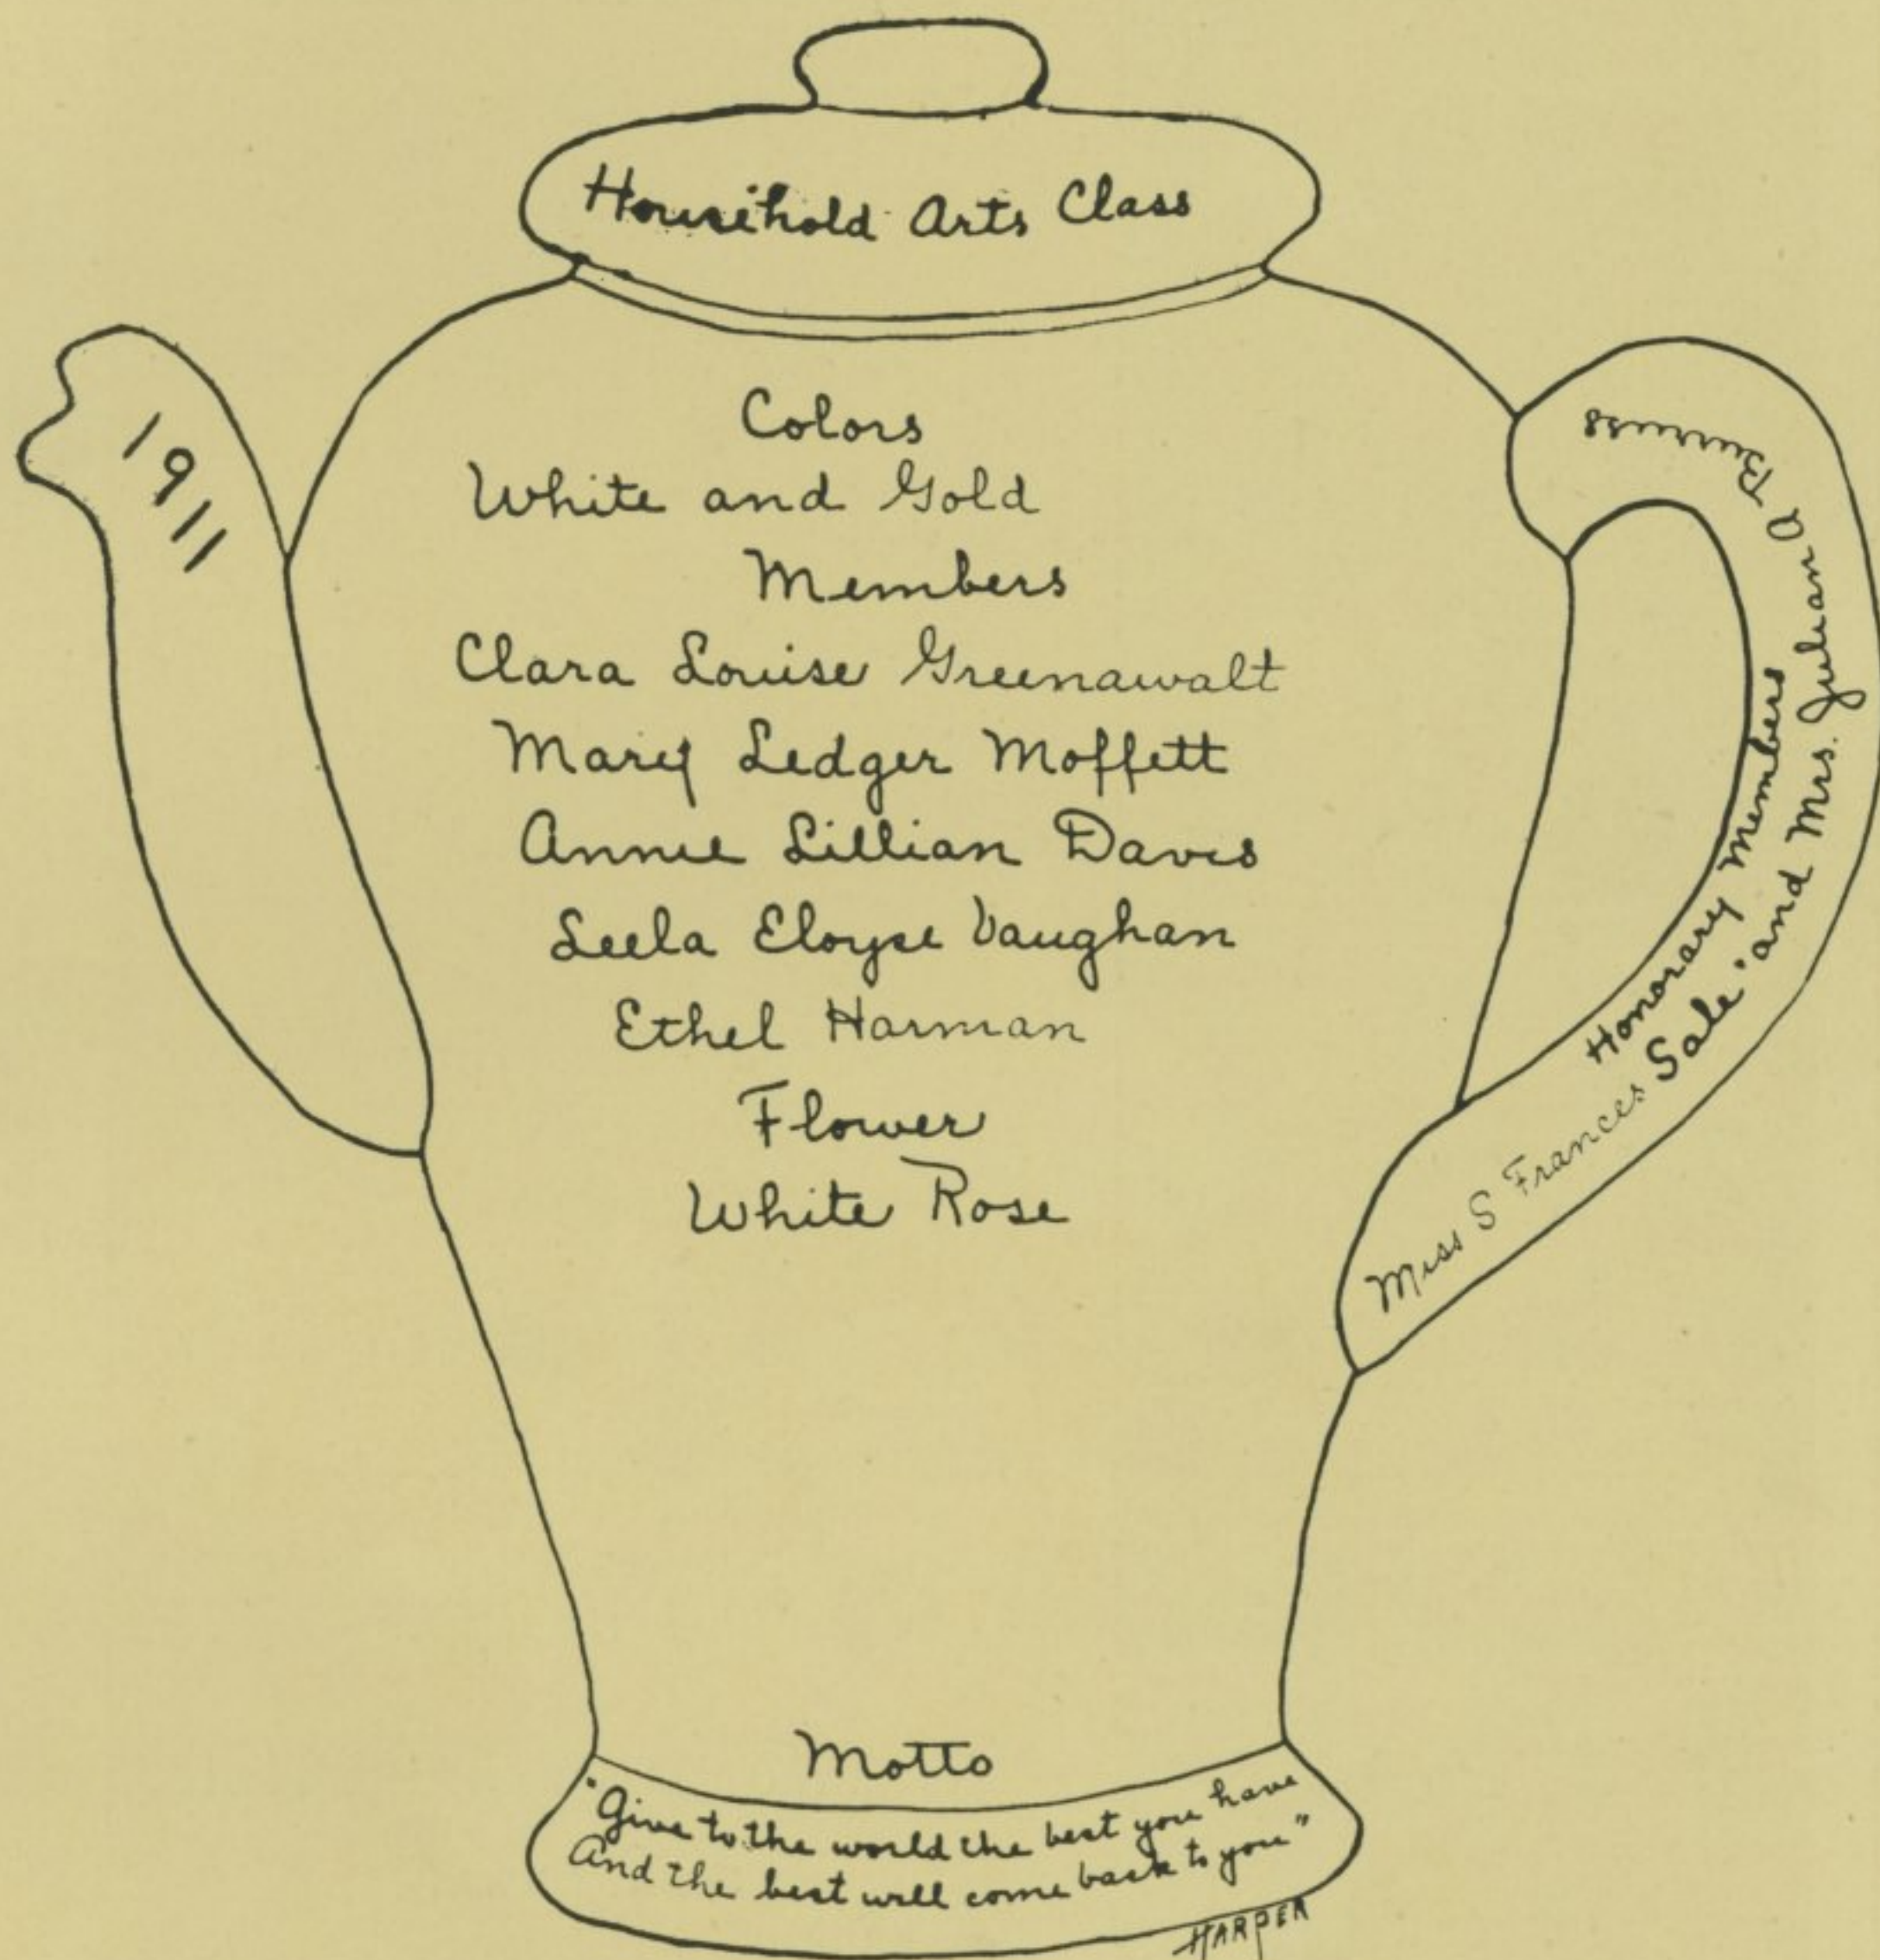 Household Arts Class
1911
Colors
White and Gold
Members
Clara Louise Greenawalt
Mary Ledger Moffett
Annie Lillian Davis
Leela Eloyse Vaughan
Ethel Harman
Flower
White Rose
Honorary Members
Miss S Frances Sale "and Mrs. Julian A Burruss
Motto
"Give to the world the best you have
And the best will come back to you"
HARPER